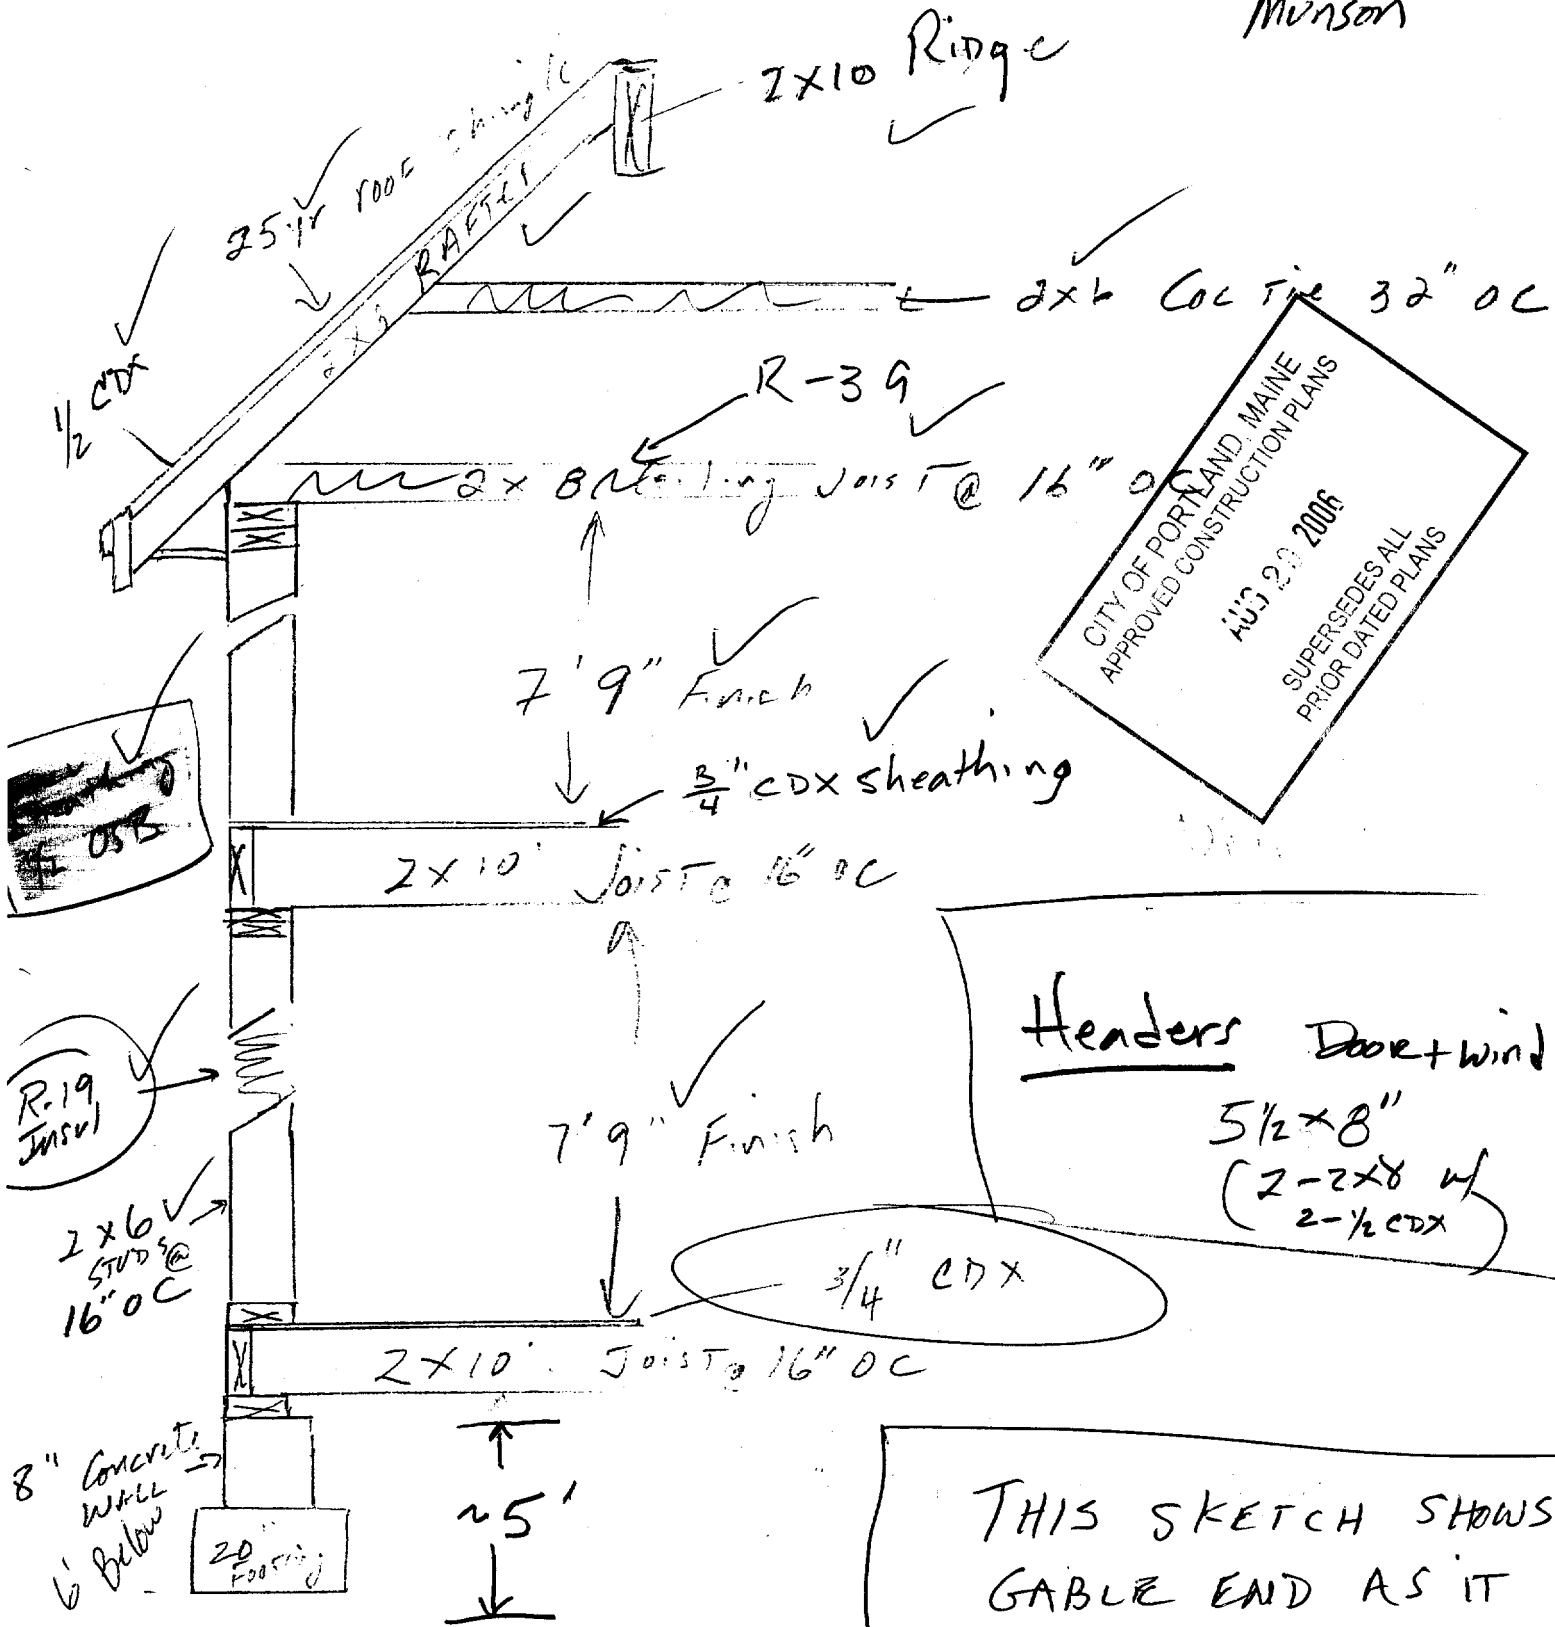 Munson
2x10 Ridge
25 yr roof shingle
2x8 RAFTER
2x6 Col Tie 32" OC
1/2 CDX
R-39
2 x 8 Ceiling Joist @ 16" OC
CITY OF PORTLAND, MAINE
APPROVED CONSTRUCTION PLANS
AUG 29 2006
SUPERSEDES ALL
PRIOR DATED PLANS
7' 9" Finich
3/4" CDX sheathing
1/2 OSB
2 X 10 Joist @ 16" OC
Headers Door + wind
5 1/2 x 8"
(2-2x8 w/
2-1/2 CDX)
R-19
Insul
7' 9" Finish
2 x 6
STUDS @
16" OC
3/4" CDX
2 X 10 Joist @ 16" OC
8" Concrete
WALL
6' Below
20" Footing
~5'
THIS SKETCH SHOWS
GABLE END AS IT